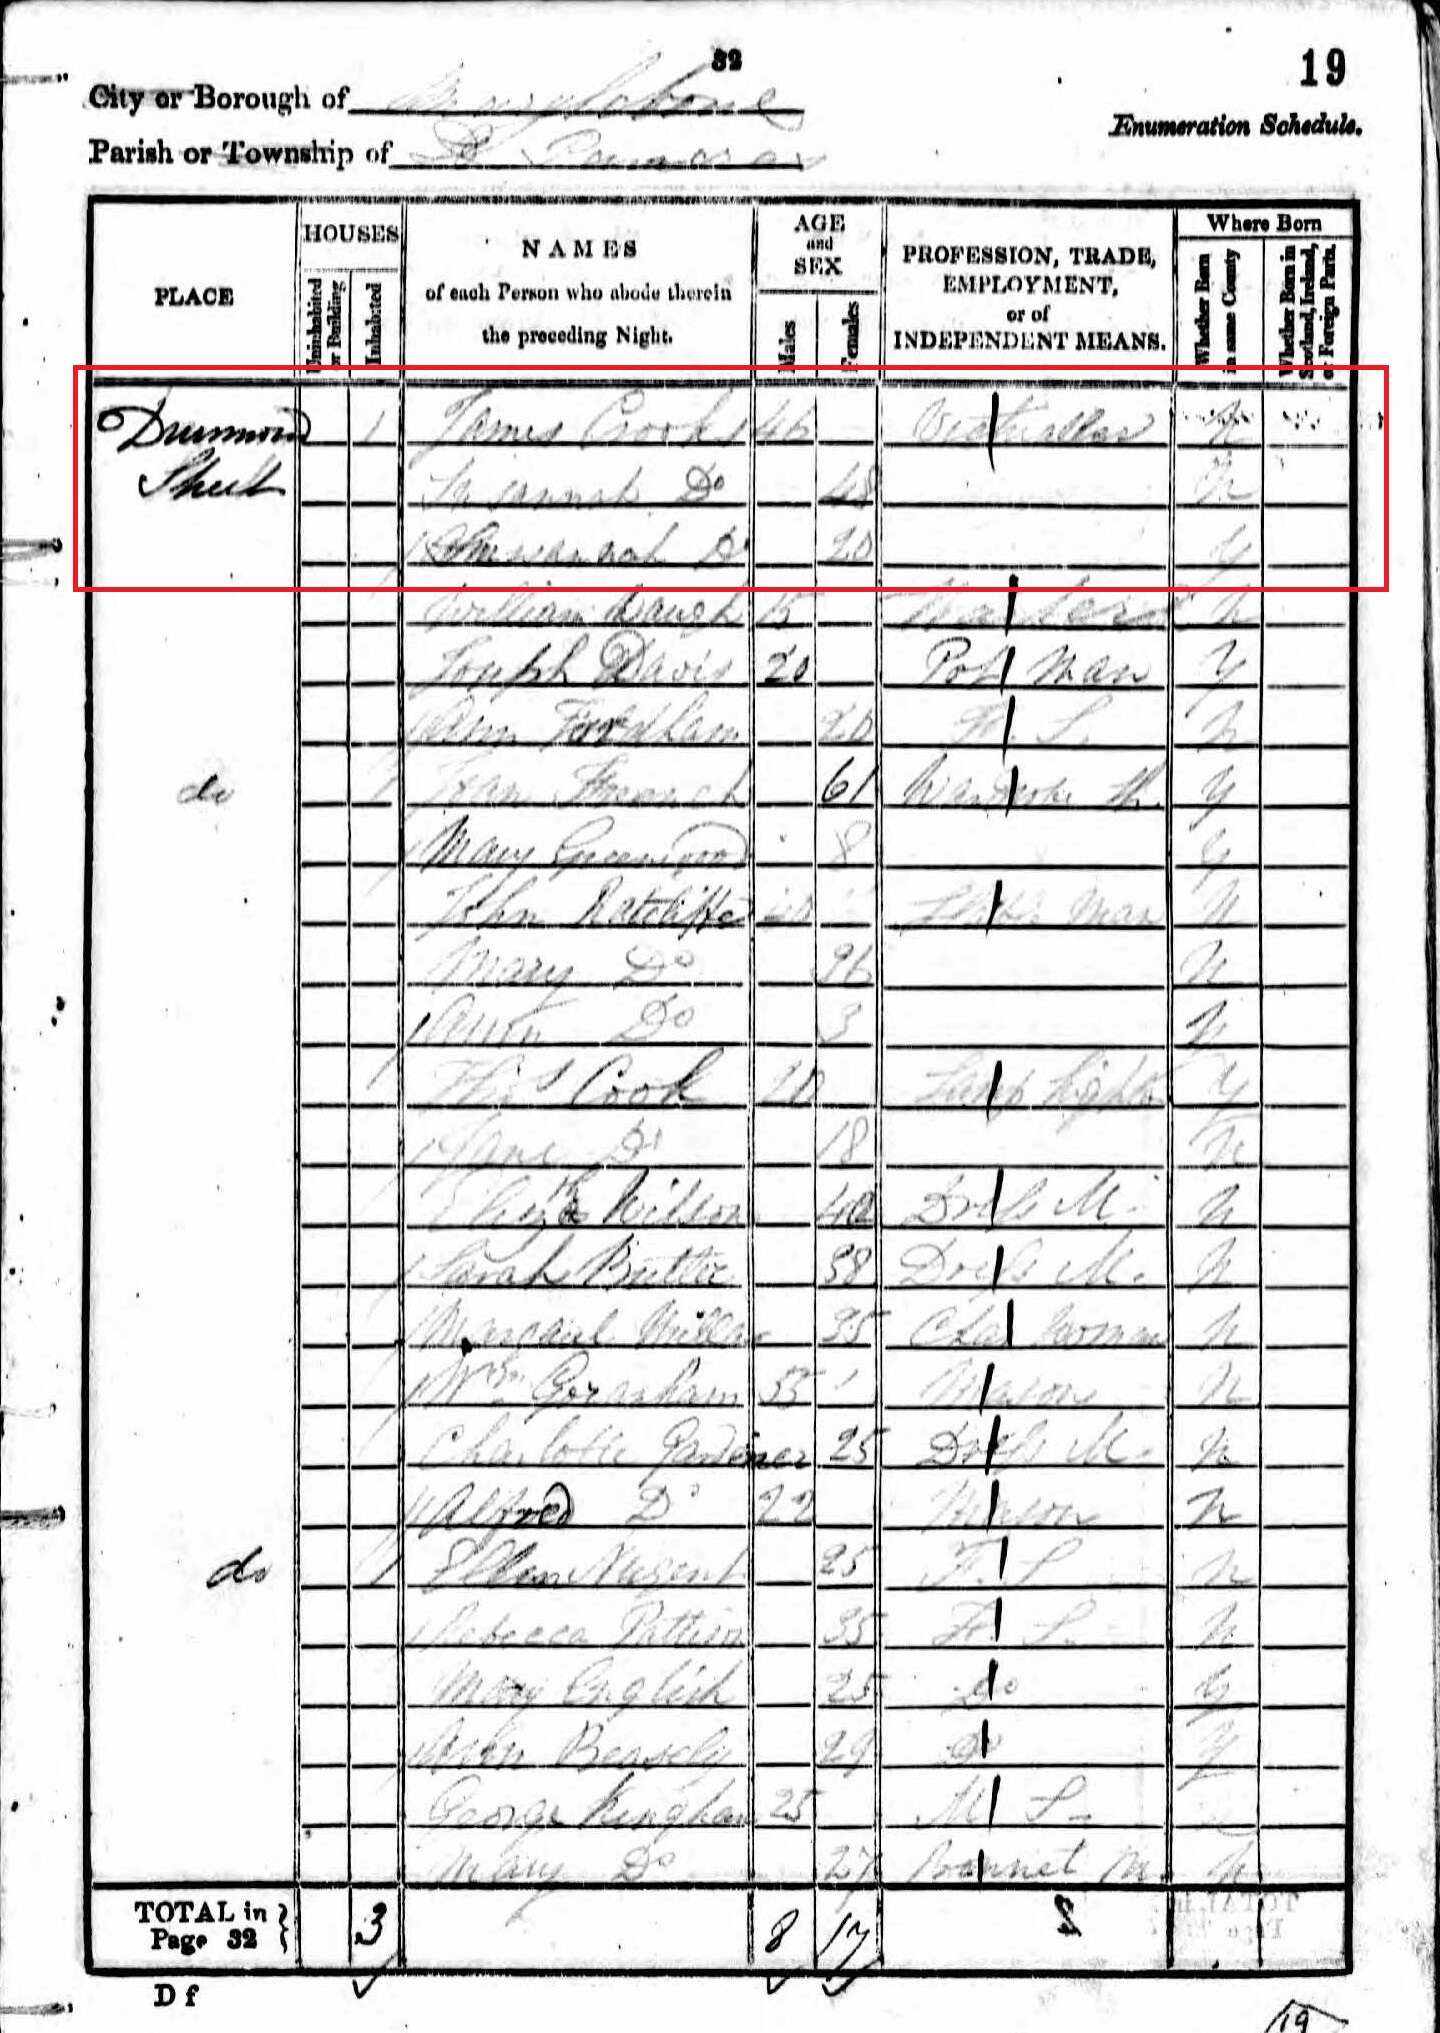 32
19
City or Borough of Marylebone
Enumeration Schedule.
Parish or Township of St Pancras
PLACE
HOUSES
Uninhabited or Building
Inhabited
NAMES
of each Person who abode therein
the preceding Night.
AGE
and
SEX
Males
Females
PROFESSION, TRADE,
EMPLOYMENT,
or of
INDEPENDENT MEANS.
Where Born
Whether Born in same County
Whether Born in Scotland, Ireland, or Foreign Parts.
Drummond 1 James Crooks 46 Victualler N
Street Susannah Do 48 N
Susannah Do 20 Y
William Waugh 15 N
Joseph Davis 20 Pot Man Y
Ann Fordham 20 F. S. N
do 1 61 Y
Mary Greenwood 8 Y
John Ratcliffe Man N
Mary Do N
Ann Do 3 N
Thos Cook 20 Lamp Lighter Y
Jane Do 18 N
Elizth Wilson 40 Dress M. N
Sarah 38 Dress M. N
35 Char Woman N
Wm 55 Mason N
Charlotte Gardiner 25 Dress M. N
Alfred Do 22 Mason N
do 1 Ellen Nugent 25 F. S N
Rebecca Pattison 35 F. S. N
Mary English 25 Do Y
Ann Beasely 29 Do Y
George Kingham 25 M S.
Mary Do 27 Bonnet M. N
TOTAL in
Page 32 } 3 8 17
D f
19